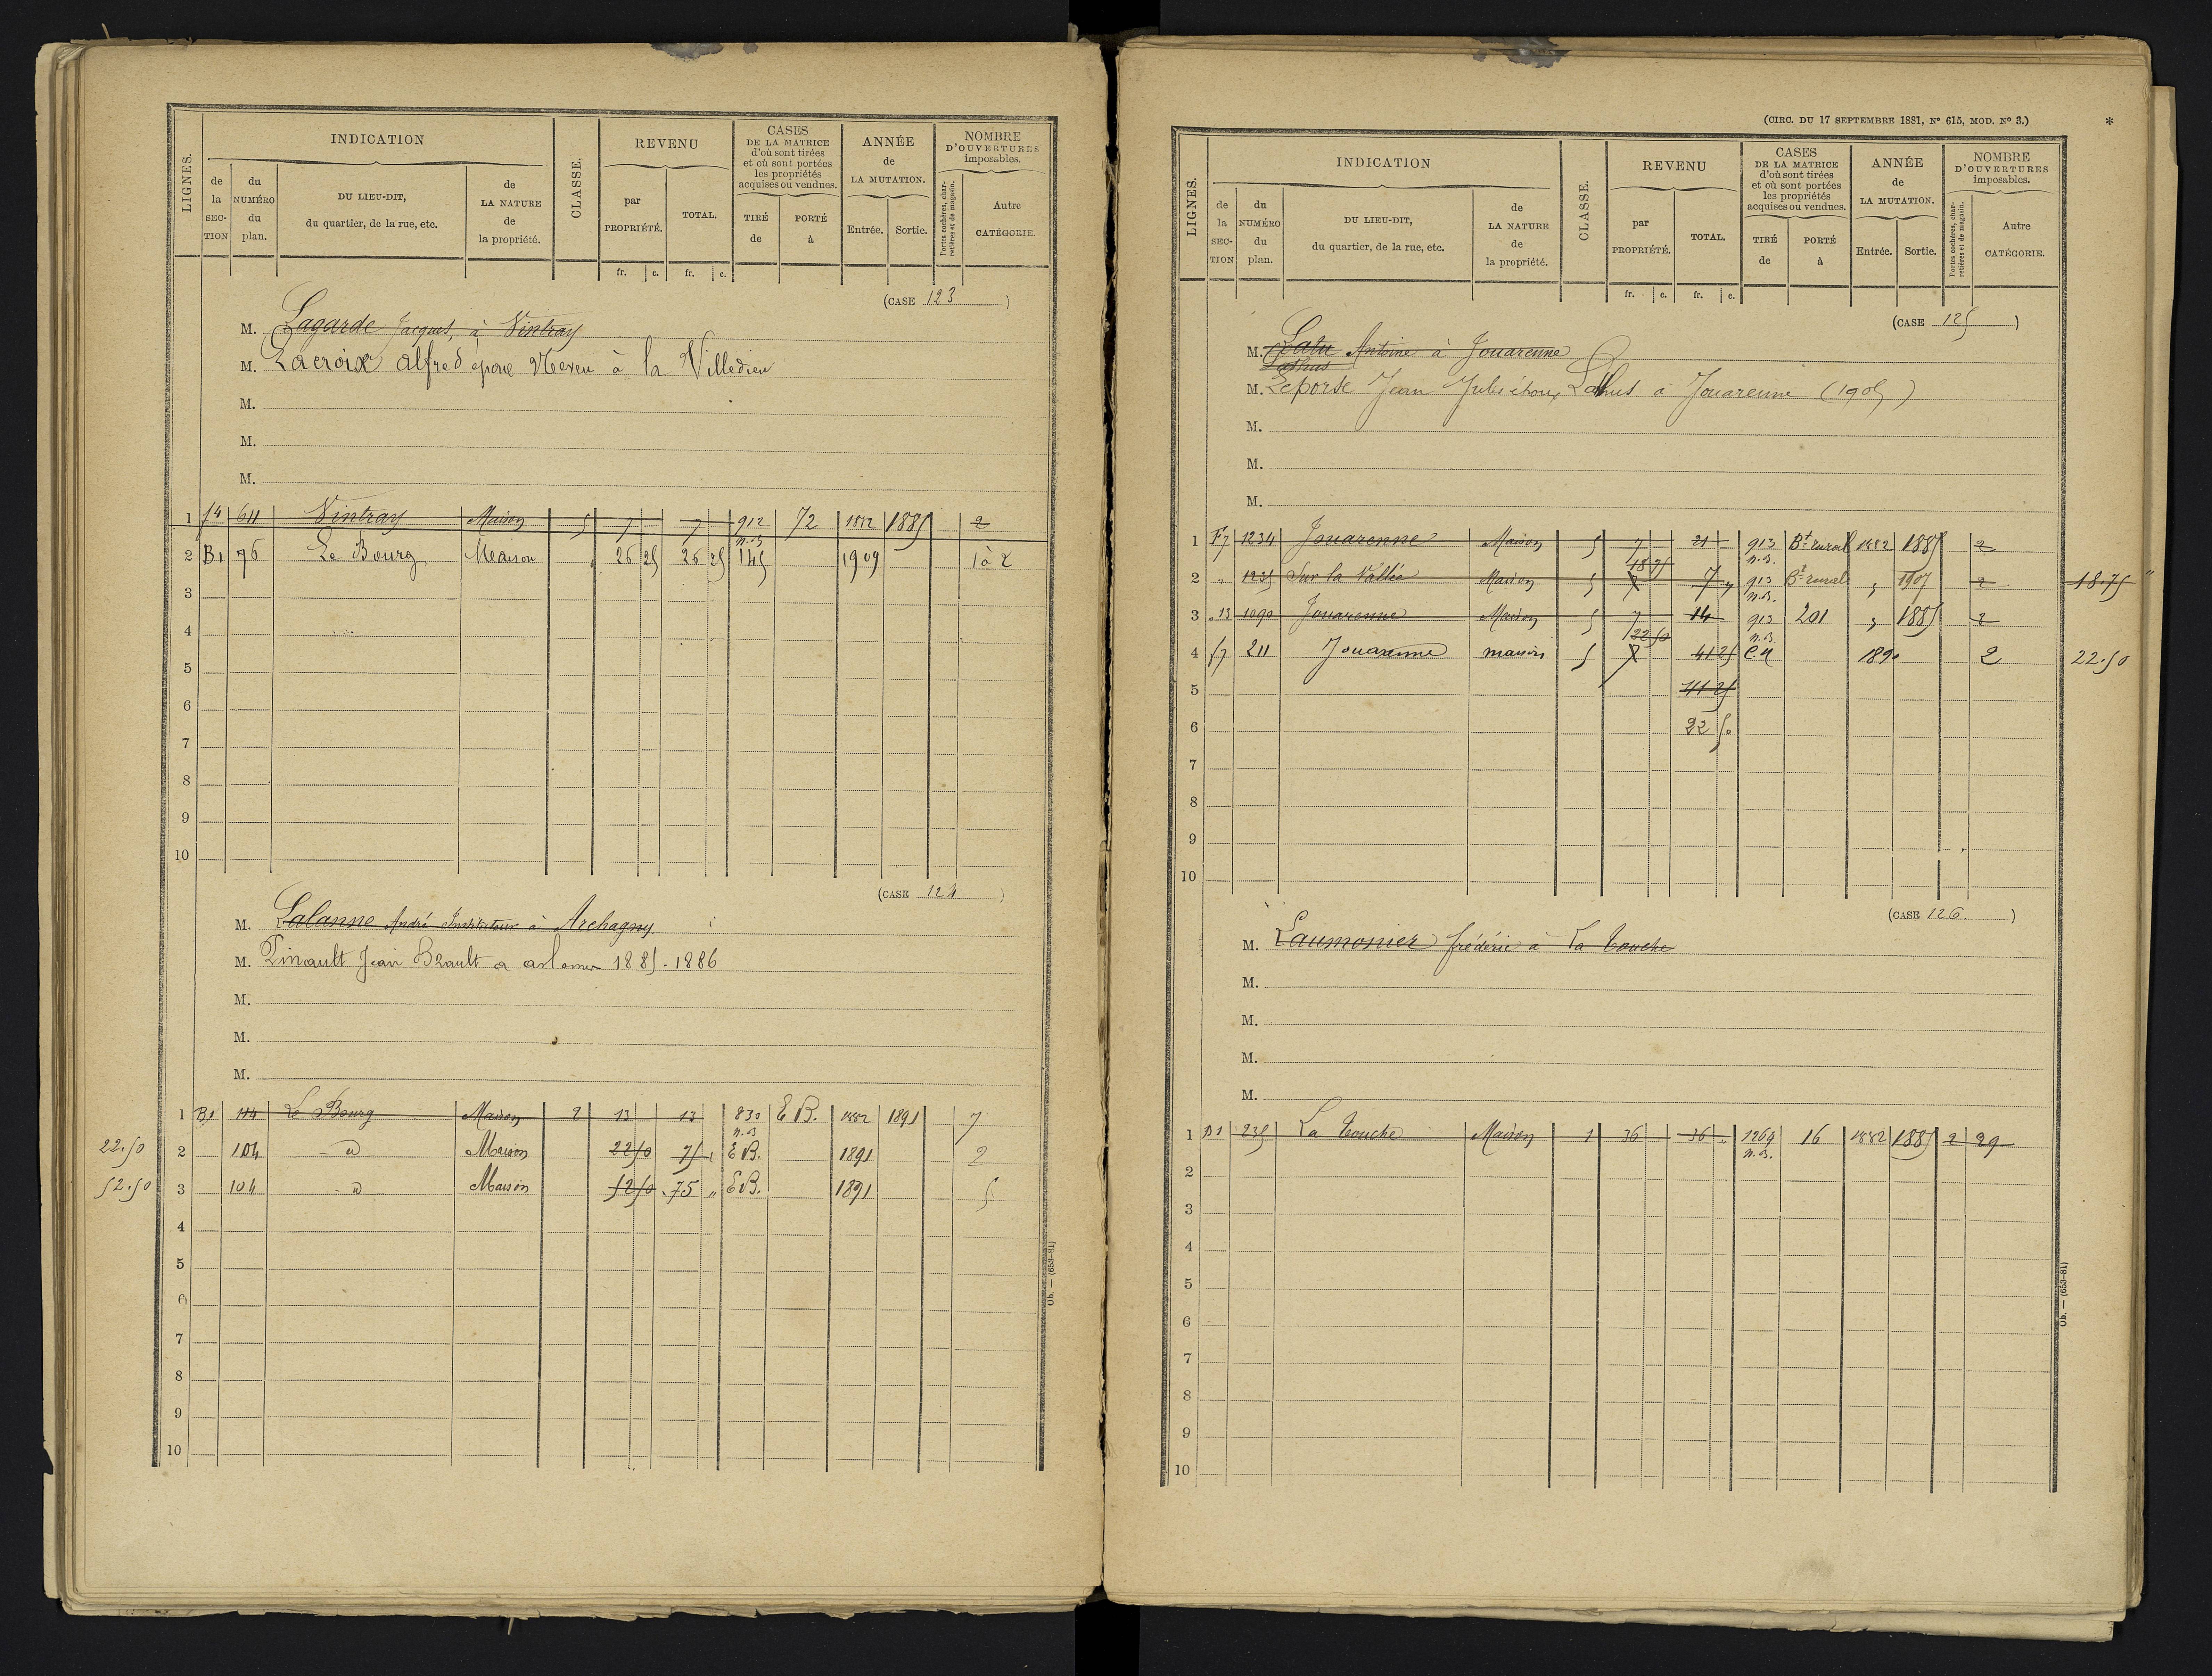 INDICATION
LIGNES.
de la SECTION
du NUMÉRO du plan.
DU LIEU-DIT, du quartier, de la rue, etc.
de LA NATURE de la propriété.
CLASSE.
REVENU
par PROPRIÉTÉ.
TOTAL.
fr. c. fr. c.
CASES DE LA MATRICE d'où sont tirées et où sont portées les propriétés acquises ou vendues.
TIRÉ de
PORTÉ à
ANNÉE de LA MUTATION.
Entrée. Sortie.
NOMBRE D'OUVERTURES imposables.
Portes cochères, charretières et de magasin.
Autre CATÉGORIE.
(CASE 123)
M. Lagarde Jacques, à Vintray
M. Lacroix Alfred époux Neveu à la Villedieu
M.
M.
M.
1 f4 611 Vintray Maison 5 7 7 912 72 1882 1885 2
n.B.
2 B1 76 Le Bourg Maison 26 25 26 25 145 1909 1 à 2
3
4
5
6
7
8
9
10
(CASE 124)
M. Lalanne André Instituteur à Archagny
M. Pinault Jean Brault a 1885-1886
M.
M.
M.
1 B1 114 Le Bourg Maison 2 13 13 830 E B. 1882 1891 7
n.B
22.50 2 104 d Maison 22 50 75 E B. 1891 2
52.50 3 104 d Maison 52 50 75 " E B. 1891 5
4
5
6
7
8
9
10
Ob. — (653-81)
(CIRC. DU 17 SEPTEMBRE 1881, N° 615, MOD. N° 3.)
*
INDICATION
LIGNES.
de la SECTION
du NUMÉRO du plan.
DU LIEU-DIT, du quartier, de la rue, etc.
de LA NATURE de la propriété.
CLASSE.
REVENU
par PROPRIÉTÉ.
TOTAL.
fr. c. fr. c.
CASES DE LA MATRICE d'où sont tirées et où sont portées les propriétés acquises ou vendues.
TIRÉ de
PORTÉ à
ANNÉE de LA MUTATION.
Entrée. Sortie.
NOMBRE D'OUVERTURES imposables.
Portes cochères, charretières et de magasin.
Autre CATÉGORIE.
(CASE 125)
M. Lalu Antoine à Jouarenne
Lathus
M. Leporse Jean Jules époux Lathus à Jouarenne (1905)
M.
M.
M.
1 F7 1234 Jouarenne Maison 5 7 21 913 Bt rural 1882 1885 2
18 75 n.B.
2 " 1235 Sur la Vallée Maison 5 7 7 " 913 Bt rural " 1907 2 18.75 "
n.B.
3 " 13 1090 Jouarenne Maison 5 7 14 913 201 " 1885 2
22 50 n.B.
4 f7 211 Jouarenne maison 5 7 41 25 C.N 1890 2 22.50
5 41 25
6 22 50
7
8
9
10
(CASE 126.)
M. Laumonier frédéric à La Touche
M.
M.
M.
M.
1 D1 235 La Touche Maison 1 36 36 " 1264 16 1882 1885 2 29
n.B.
2
3
4
5
6
7
8
9
10
Ob. — (653-81)